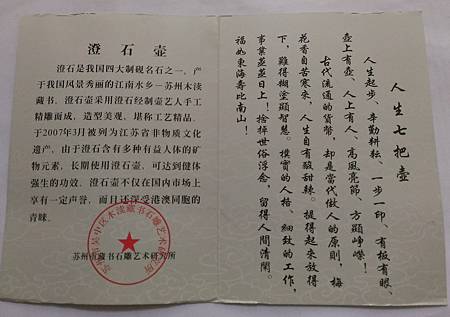 澄石壶
澄石是我国四大制砚名石之一，产
于我国风景秀丽的江南水乡—苏州木渎
藏书。澄石壶采用澄石经制壶艺人手工
精雕而成，造型美观，堪称工艺精品，
于2007年3月被列为江苏省非物质文化
遗产。由于澄石含有多种有益人体的矿
物元素，长期使用澄石壶，可达到健体
强生的功效。澄石壶不仅在国内市场上
享有一定声誉，而且还深受港澳同胞的
青睐。
苏州市藏书石雕艺术研究所
吴中区木渎藏书石雕艺术研究所
人生七把壺
人生起步、辛勤耕耘、一步一印、有板有眼、
壺上有壺、人上有人、高風亮節、方顯崢嶸！
古代流通的貨幣，却是當代做人的原則，梅
花香自苦寒來，人生自有酸甜辣。提得起来放得
下，難得糊塗顯智慧。樸實的人格、細致的工作，
事業蒸蒸日上！捨掉世俗浮念，留得人間清閑。
福如東海壽比南山！